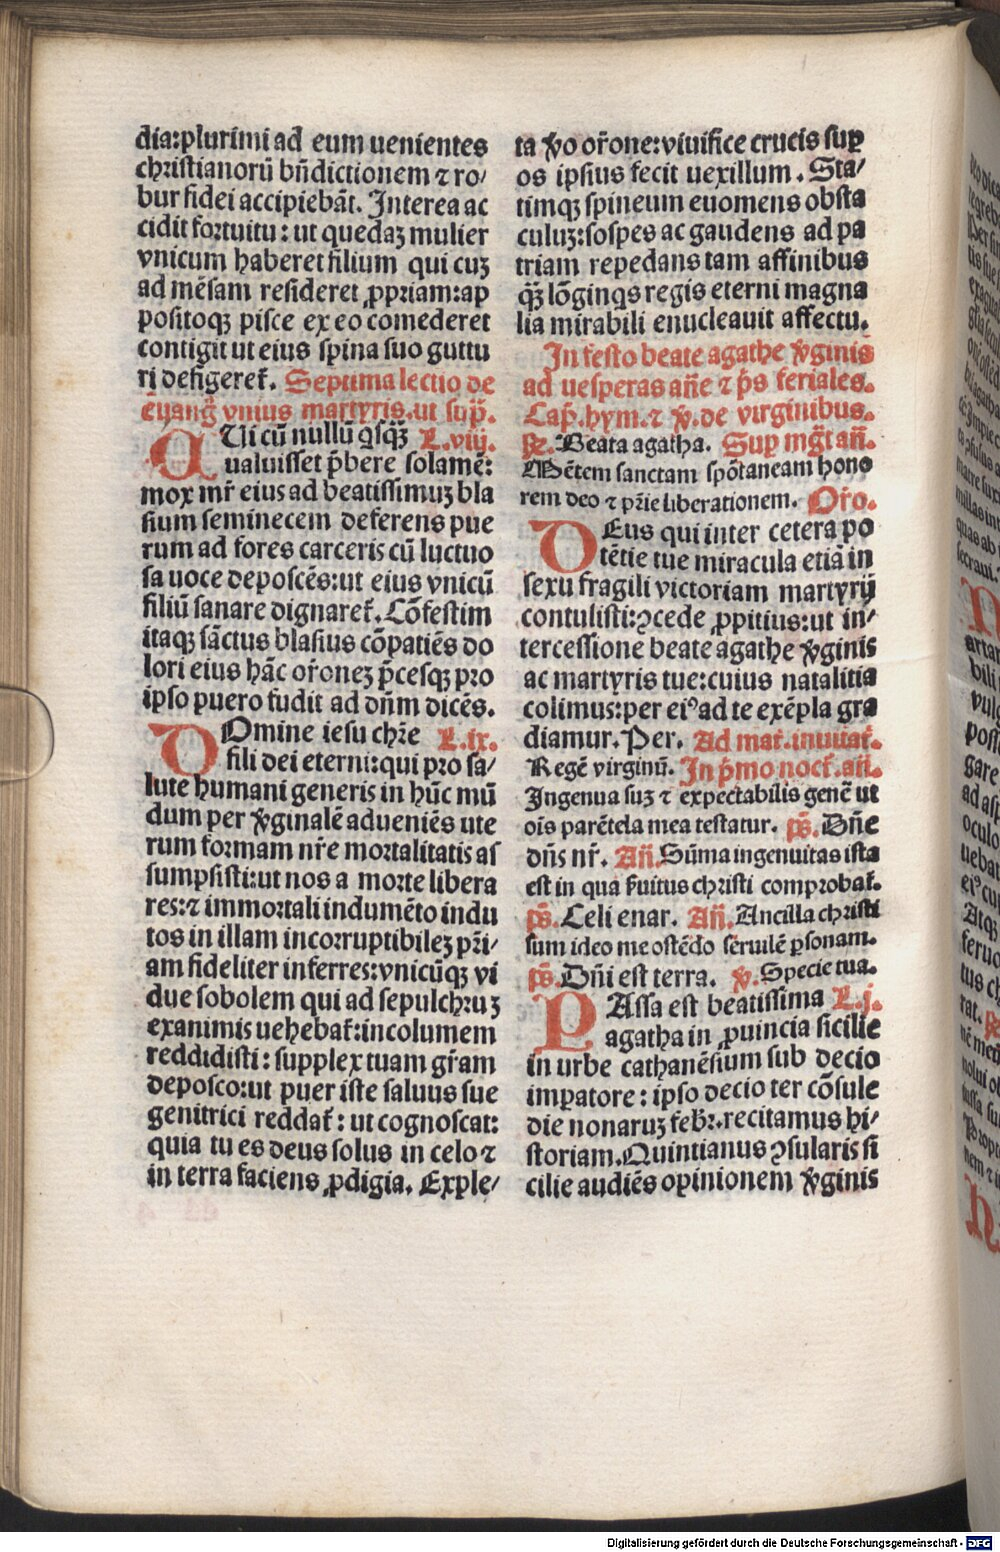 dia:plurimi ad eum uenientes
christianorū bn̄dictionem ⁊ ro/
bur fidei accipiebāt. Interea ac
cidit fortuitu: ut quedaꝫ mulier
vnicum haberet filium qui cuꝫ
ad mēsam resideret ꝓpriam:ap
positoqꝫ pisce ex eo comederet
contigit ut eius spina suo guttu
ri defigeret᷑. Septima lectio de
euang̃ vnius martyris.ut sup̄.
QUi cū nullū q̄sq̄ꝫ L.viij.
ualuisset p̄bere solamē:
mox mr̄ eius ad beatissimuꝫ bla
sium seminecem deferens pue
rum ad fores carceris cū luctuo
sa uoce deposcēs:ut eius vnicū
filiū sanare dignaret᷑. Cōfestim
itaqꝫ sāctus blasius cōpatiēs do
lori eius hāc or̄onez p̄cesqꝫ pro
ipso puero fudit ad dn̄m dicēs.
DOmine iesu chr̄e L.ix.
fili dei eterni:qui pro sa/
lute humani generis in hūc mū
dum per v̄ginalē adueniēs ute
rum formam nr̄e mortalitatis as
sumpsisti:ut nos a morte libera
res:⁊ immortali indumēto indu
tos in illam incorruptibilez pr̄i/
am fideliter inferres:vnicūqꝫ vi
due sobolem qui ad sepulchruꝫ
exanimis uehebat᷑:incolumem
reddidisti: supplex tuam gr̄am
deposco:ut puer iste saluus sue
genitrici reddat᷑: ut cognoscat:
quia tu es deus solus in celo ⁊
in terra faciens ꝓdigia. Exple/
ta v̄o or̄one:viuifice crucis suꝑ
os ipsius fecit uexillum. Sta/
timqꝫ spineum euomens obsta
culuꝫ:sospes ac gaudens ad pa
triam repedans tam affinibus
q̄ꝫ lōginq̄s regis eterni magna
lia mirabili enucleauit affectu.
In festo beate agathe v̄ginis
ad uesperas añe ⁊ p̄s feriales.
Cap̄.hym.⁊ ℣.de virginibus.
℟.Beata agatha. Suꝑ mg̃t añ.
Mētem sanctam spōtaneam hono
rem deo ⁊ pr̄ie liberationem. Or̄o.
DEus qui inter cetera po
tētie tue miracula etiā in
sexu fragili victoriam martyrij
contulisti:ꝯcede ꝓpitius:ut in/
tercessione beate agathe v̄ginis
ac martyris tue:cuius natalitia
colimus:per eiꝰ ad te exēpla gra
diamur. Per. Ad mat᷑.inuitat᷑.
Regē virginū. In p̄mo noct᷑.añ.
Ingenua suꝫ ⁊ expectabilis genē ut
oīs parētela mea testatur. p̄s. Dn̄e
dn̄s nr̄. Añ. Sūma ingenuitas ista
est in qua ẜuitus christi comprobat᷑.
p̄s. Celi enar. Añ. Ancilla christi
sum ideo me ostēdo seruilē ꝑsonam.
p̄s. Dn̄i est terra. ℣. Specie tua.
PAssa est beatissima L.j.
agatha in ꝓuincia sicilie
in urbe cathanēsium sub decio
imꝑatore: ipso decio ter cōsule
die nonaruꝫ febr̄.recitamus hi/
storiam.Quintianus ꝯsularis si
cilie audiēs opinionem v̄ginis
Digitalisierung gefördert durch die Deutsche Forschungsgemeinschaft - DFG